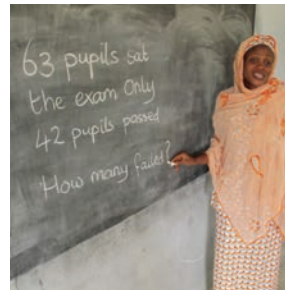 63 pupils sat
the exam Only
42 pupils passed
How many failed?